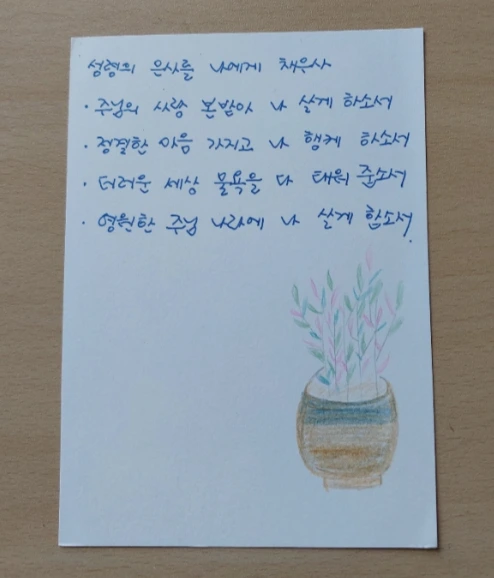 성령의 은사를 나에게 채우사
· 주님의 사랑 본받아 나 살게 하소서
· 정결한 마음 가지고 나 행케 하소서
· 더러운 세상 물욕을 다 태워 줍소서
· 영원한 주님 나라에 나 살게 합소서.